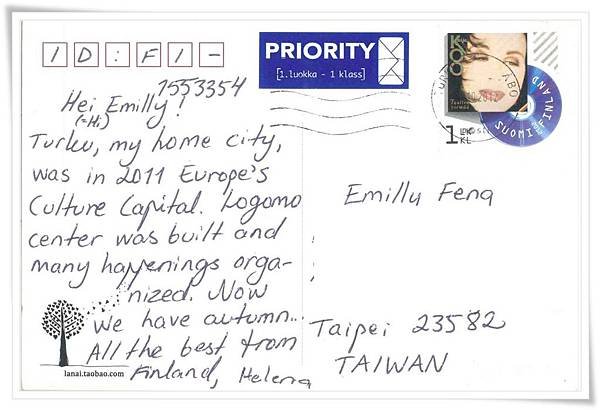 ID:FI-
1553354
Hei Emilly!
(=Hi)
Turku, my home city,
was in 2011 Europe's
Culture Capital. Logomo
center was built and
many happenings orga-
nized. Now
we have autumn...
All the best from
Finland, Helena
lanai.taobao.com
PRIORITY
[1.luokka - 1 klass]
ABO
1 LK
KL
SUOMI FINLAND
Emilly Feng
Taipei 23582
TAIWAN